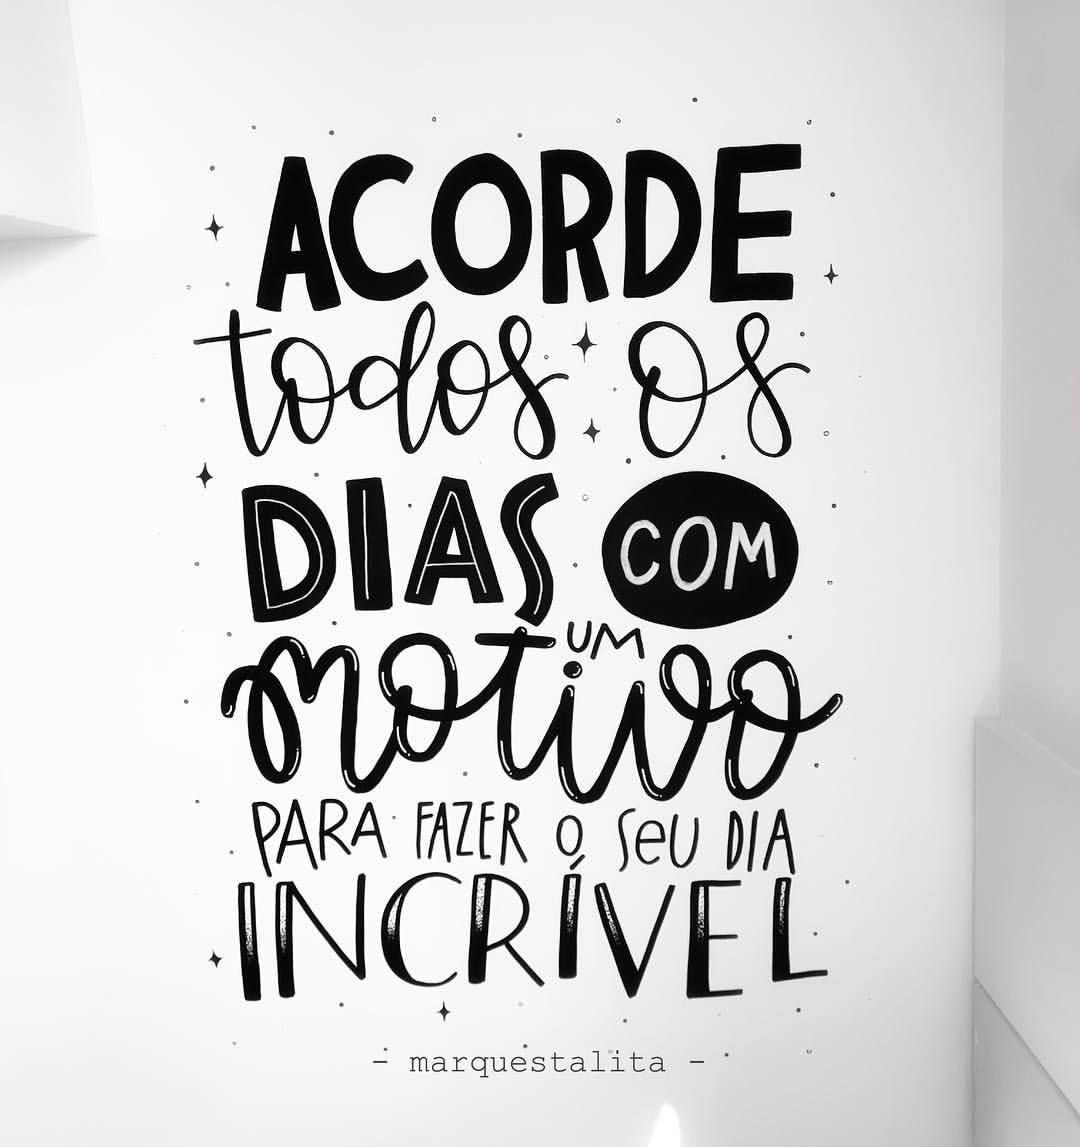 ACORDE
todos os
DIAS COM
UM
motivo
PARA FAZER O SeU DIA
INCRÍVEL
- marquestalita -